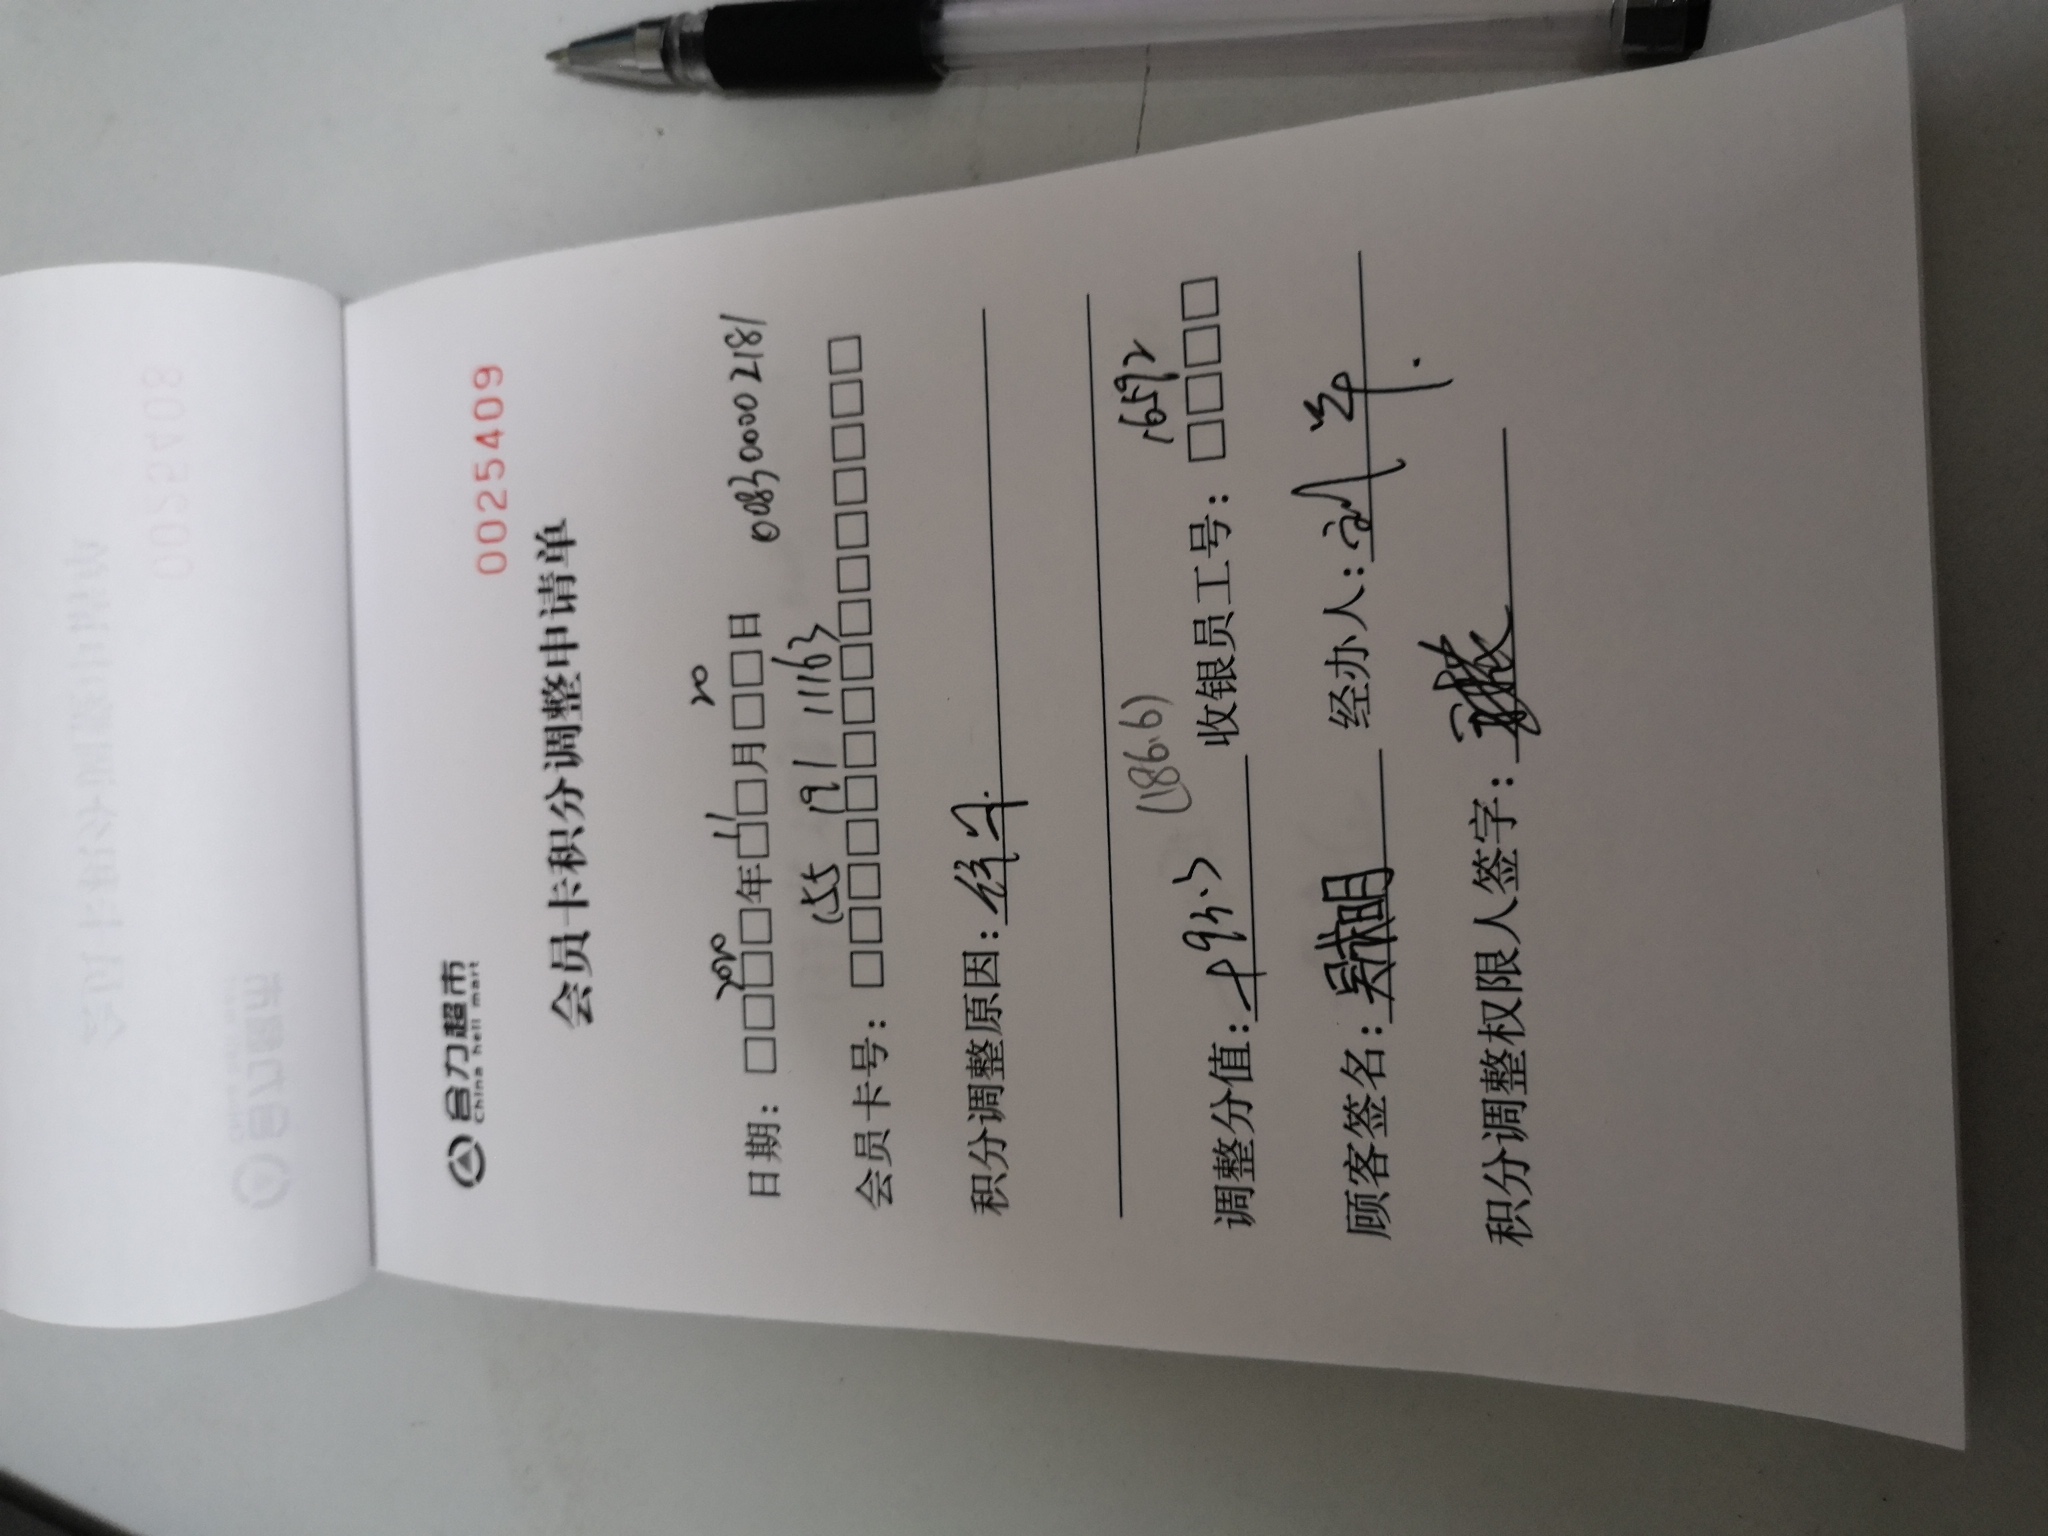 合力超市
China holi mart
0025409
会员卡积分调整申请单
日期：□□□□年□□月□□日 2020 1 20 008300002181
会员卡号：□□□□□□□□□□□□□□□ 155 191 11163
积分调整原因：
(186.6)
调整分值：+93.3 收银员工号：□□□□ 16592
顾客签名： 经办人：
积分调整权限人签字：